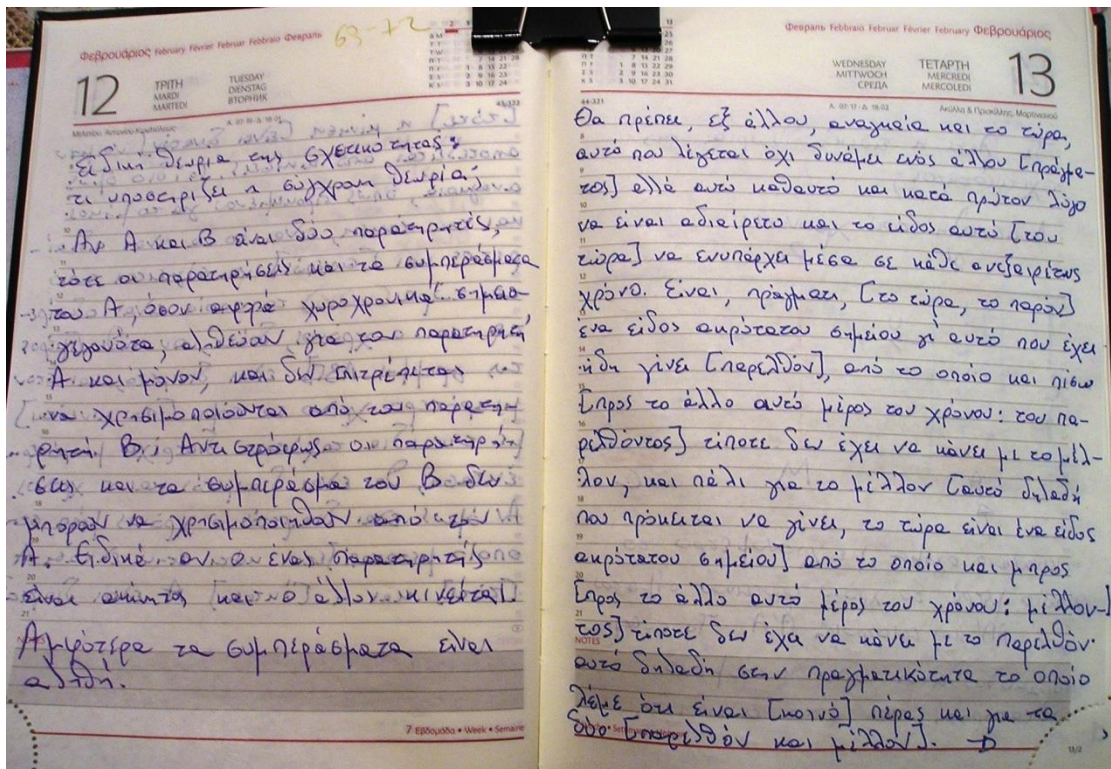 Φεβρουάριος February Février Februar Febbraio Февраль
63-72
12
ΤΡΙΤΗ
MARDI
MARTEDI
TUESDAY
DIENSTAG
ВТОРНИК
43-322
Ειδική θεωρία της σχετικότητας:
τι υποστηρίζει η σύγχρονη θεωρία;
Αν Α και Β είναι δύο παρατηρητές,
τότε οι παρατηρήσεις και τα συμπεράσματα
του Α, όσον αφορά χωροχρονικά σημεία-
γεγονότα, αληθεύουν για τον παρατηρητή
Α και μόνον, και δεν επιτρέπεται
να χρησιμοποιούνται από τον παρατη-
ρητή Β. Αντιστρόφως οι παρατηρή-
σεις και τα συμπεράσμα του Β δεν
μπορούν να χρησιμοποιηθούν από τον
Α. Ειδικά αν ο ένας παρατηρητής
είναι ακίνητος [και ο άλλος κινείται].
Αμφότερα τα συμπεράσματα είναι
αληθή.
7 Εβδομάδα • Week • Semaine
Февраль Febbraio Februar Février February Φεβρουάριος
WEDNESDAY
MITTWOCH
СРЕДА
ΤΕΤΑΡΤΗ
MERCREDI
MERCOLEDI
13
44-321
Α. 07:17 - Δ. 18:02
Ακύλλα & Πρισκίλλης, Μαρτινιανού
Θα πρέπει, εξ άλλου, αναγκαία και το τώρα,
αυτό που λέγεται όχι δυνάμει ενός άλλου [πράγμα-
τος] αλλά αυτό καθαυτό και κατά πρώτον λόγο
να είναι αδιαίρετο και το είδος αυτό [του
τώρα] να ενυπάρχει μέσα σε κάθε ανεξαιρέτως
χρόνο. Είναι, πράγματι, [το τώρα, το παρόν]
ένα είδος ακρότατου σημείου γι αυτό που έχει
ήδη γίνει [παρελθόν], από το οποίο και πίσω
[προς το άλλο αυτό μέρος του χρόνου: του πα-
ρελθόντος] τίποτε δεν έχει να κάνει με το μέλ-
λον, και πάλι για το μέλλον [αυτό δηλαδή
που πρόκειται να γίνει, το τώρα είναι ένα είδος
ακρότατου σημείου] από το οποίο και μπρος
[προς το άλλο αυτό μέρος του χρόνου: μέλλον-
τος] τίποτε δεν έχει να κάνει με το παρελθόν·
NOTES
αυτό δηλαδή στην πραγματικότητα το οποίο
λέμε ότι είναι [κοινό] πέρας και για τα
δύο [παρελθόν και μέλλον].
13/2